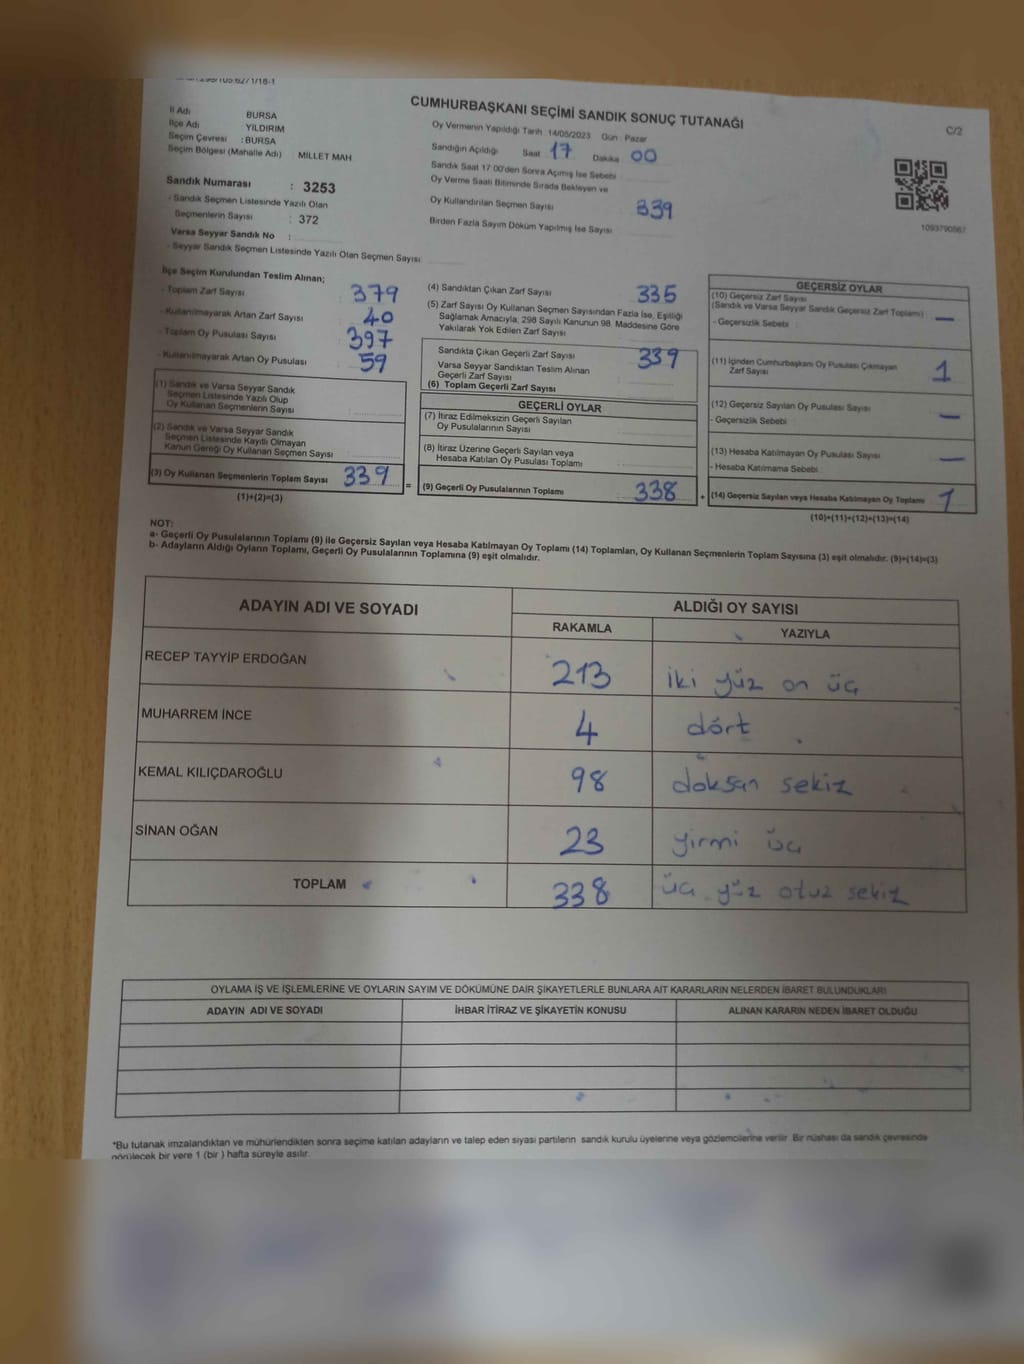 CUMHURBAŞKANI SEÇİMİ SANDIK SONUÇ TUTANAĞI
C/2
İl Adı BURSA
İlçe Adı YILDIRIM
Seçim Çevresi : BURSA
Seçim Bölgesi (Mahalle Adı) MİLLET MAH
Sandık Numarası : 3253
- Sandık Seçmen Listesinde Yazılı Olan
Seçmenlerin Sayısı : 372
Varsa Seyyar Sandık No :
- Seyyar Sandık Seçmen Listesinde Yazılı Olan Seçmen Sayısı
Oy Vermenin Yapıldığı Tarih 14/05/2023 Gün : Pazar
Sandığın Açıldığı Saat 17 Dakika 00
Sandık Saat 17 00'den Sonra Açılmış İse Sebebi
Oy Verme Saati Bitiminde Sırada Bekleyen ve
Oy Kullandırılan Seçmen Sayısı 339
Birden Fazla Sayım Döküm Yapılmış İse Sayısı
1093790567
İlçe Seçim Kurulundan Teslim Alınan;
- Toplam Zarf Sayısı 379
- Kullanılmayarak Artan Zarf Sayısı 40
- Toplam Oy Pusulası Sayısı 397
- Kullanılmayarak Artan Oy Pusulası 59
(1) Sandık ve Varsa Seyyar Sandık
Seçmen Listesinde Yazılı Olup
Oy Kullanan Seçmenlerin Sayısı
(2) Sandık ve Varsa Seyyar Sandık
Seçmen Listesinde Kayıtlı Olmayan
Kanun Gereği Oy Kullanan Seçmen Sayısı
(3) Oy Kullanan Seçmenlerin Toplam Sayısı 339
(1)+(2)=(3)
(4) Sandıktan Çıkan Zarf Sayısı 335
(5) Zarf Sayısı Oy Kullanan Seçmen Sayısından Fazla İse, Eşitliği
Sağlamak Amacıyla, 298 Sayılı Kanunun 98. Maddesine Göre
Yakılarak Yok Edilen Zarf Sayısı
Sandıkta Çıkan Geçerli Zarf Sayısı 339
Varsa Seyyar Sandıktan Teslim Alınan
Geçerli Zarf Sayısı
(6) Toplam Geçerli Zarf Sayısı
GEÇERLİ OYLAR
(7) İtiraz Edilmeksizin Geçerli Sayılan
Oy Pusulalarının Sayısı
(8) İtiraz Üzerine Geçerli Sayılan veya
Hesaba Katılan Oy Pusulası Toplamı
= (9) Geçerli Oy Pusulalarının Toplamı 338
GEÇERSİZ OYLAR
(10) Geçersiz Zarf Sayısı
(Sandık ve Varsa Seyyar Sandık Geçersiz Zarf Toplamı) —
- Geçersizlik Sebebi :
(11) İçinden Cumhurbaşkanı Oy Pusulası Çıkmayan
Zarf Sayısı 1
(12) Geçersiz Sayılan Oy Pusulası Sayısı —
- Geçersizlik Sebebi :
(13) Hesaba Katılmayan Oy Pusulası Sayısı —
- Hesaba Katılmama Sebebi :
+ (14) Geçersiz Sayılan veya Hesaba Katılmayan Oy Toplamı 1
(10)+(11)+(12)+(13)=(14)
NOT:
a- Geçerli Oy Pusulalarının Toplamı (9) ile Geçersiz Sayılan veya Hesaba Katılmayan Oy Toplamı (14) Toplamları, Oy Kullanan Seçmenlerin Toplam Sayısına (3) eşit olmalıdır. (9)+(14)=(3)
b- Adayların Aldığı Oyların Toplamı, Geçerli Oy Pusulalarının Toplamına (9) eşit olmalıdır.
ADAYIN ADI VE SOYADI ALDIĞI OY SAYISI
RAKAMLA YAZIYLA
RECEP TAYYİP ERDOĞAN 213 iki yüz on üç
MUHARREM İNCE 4 dört
KEMAL KILIÇDAROĞLU 98 doksan sekiz
SİNAN OĞAN 23 yirmi üç
TOPLAM 338 üç yüz otuz sekiz
OYLAMA İŞ VE İŞLEMLERİNE VE OYLARIN SAYIM VE DÖKÜMÜNE DAİR ŞİKAYETLERLE BUNLARA AİT KARARLARIN NELERDEN İBARET BULUNDUKLARI
ADAYIN ADI VE SOYADI İHBAR İTİRAZ VE ŞİKAYETİN KONUSU ALINAN KARARIN NEDEN İBARET OLDUĞU
*Bu tutanak imzalandıktan ve mühürlendikten sonra seçime katılan adayların ve talep eden siyasi partilerin sandık kurulu üyelerine veya gözlemcilerine verilir. Bir nüshası da sandık çevresinde
görülecek bir yere 1 (bir ) hafta süreyle asılır.